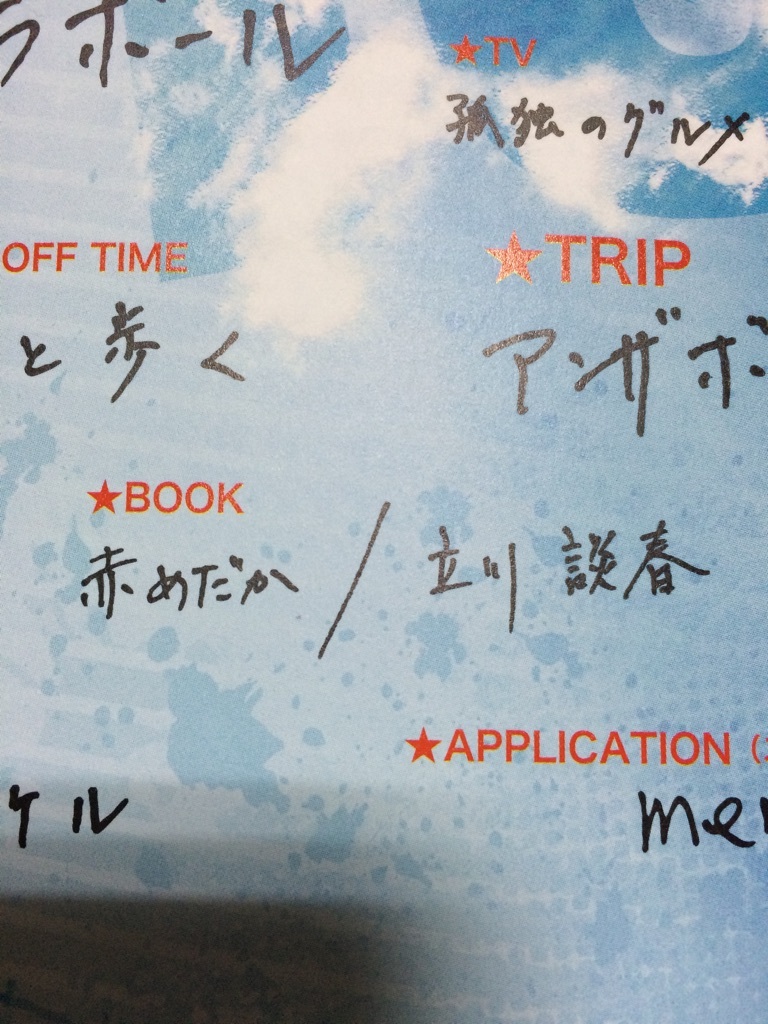 ラボール
★TV
孤独のグルメ
OFF TIME
と歩く
★TRIP
アンザボ
★BOOK
赤めだか / 立川 談春
★APPLICATION（
ケル
mer